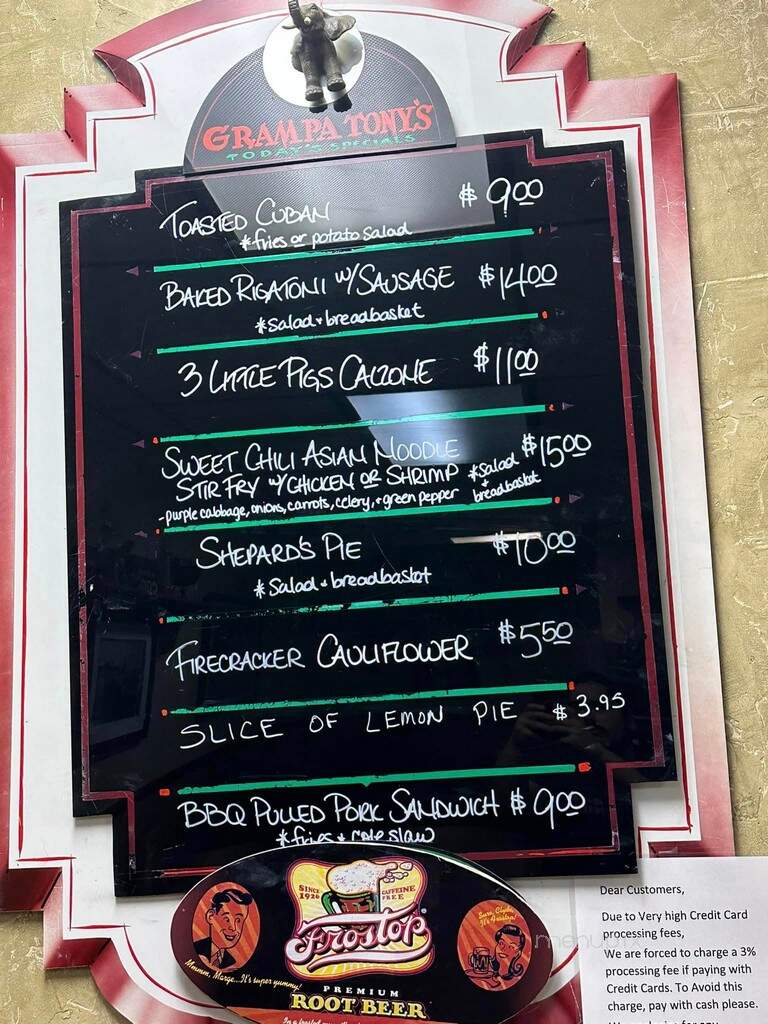 GRAMPA TONY'S
TODAY'S SPECIALS
TOASTED CUBAN $9.00
*fries or potato salad
BAKED RIGATONI W/SAUSAGE $14.00
*salad + breadbasket
3 LITTLE PIGS CALZONE $11.00
SWEET CHILI ASIAN NOODLE $15.00
STIR FRY W/CHICKEN OR SHRIMP *salad + breadbasket
-purple cabbage, onions, carrots, celery, + green pepper
SHEPARD'S PIE $10.00
*Salad + breadbasket
FIRECRACKER CAULIFLOWER $5.50
SLICE OF LEMON PIE $3.95
BBQ PULLED PORK SANDWICH $9.00
*fries + cole slaw
SINCE 1926 CAFFEINE FREE
Frostop
Mmmm, Marge...It's super yummy!
PREMIUM
ROOT BEER
Dear Customers,
Due to Very high Credit Card
processing fees,
We are forced to charge a 3%
processing fee if paying with
Credit Cards. To Avoid this
charge, pay with cash please.
menupix